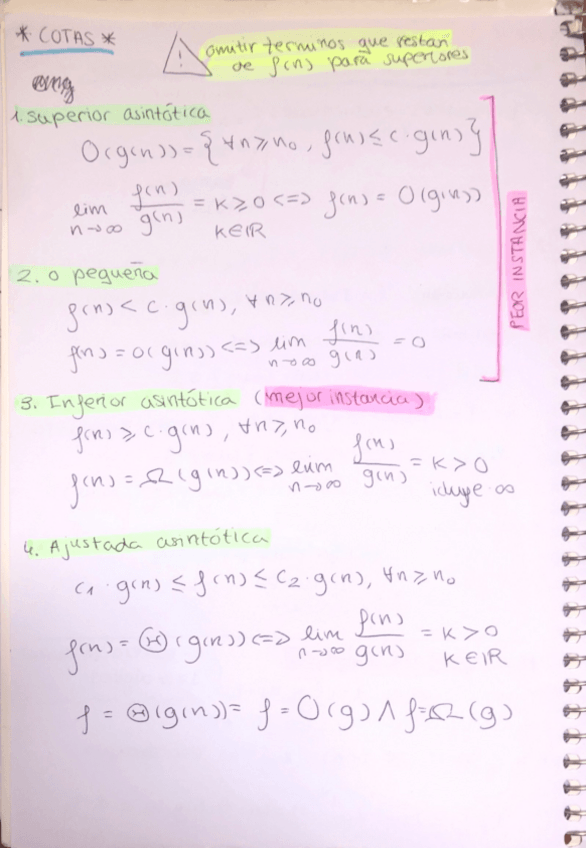 * COTAS *
omitir terminos que restan
de f(n) para superiores
1. Superior asintótica
O(g(n)) = { ∀n≥n₀, f(n) ≤ c·g(n) }
lim n→∞ f(n)/g(n) = K ≥ 0 <=> f(n) = O(g(n))
K∈ℝ
2. o pequeña
f(n) < c·g(n), ∀n≥n₀
f(n) = o(g(n)) <=> lim n→∞ f(n)/g(n) = 0
PEOR INSTANCIA
3. Inferior asintótica (mejor instancia)
f(n) ≥ c·g(n), ∀n≥n₀
f(n) = Ω(g(n)) <=> lim n→∞ f(n)/g(n) = K > 0
icluye ∞
4. Ajustada asintótica
c₁·g(n) ≤ f(n) ≤ c₂·g(n), ∀n≥n₀
f(n) = Θ(g(n)) <=> lim n→∞ f(n)/g(n) = K > 0
K∈ℝ
f = Θ(g(n)) = f = O(g) ∧ f=Ω(g)